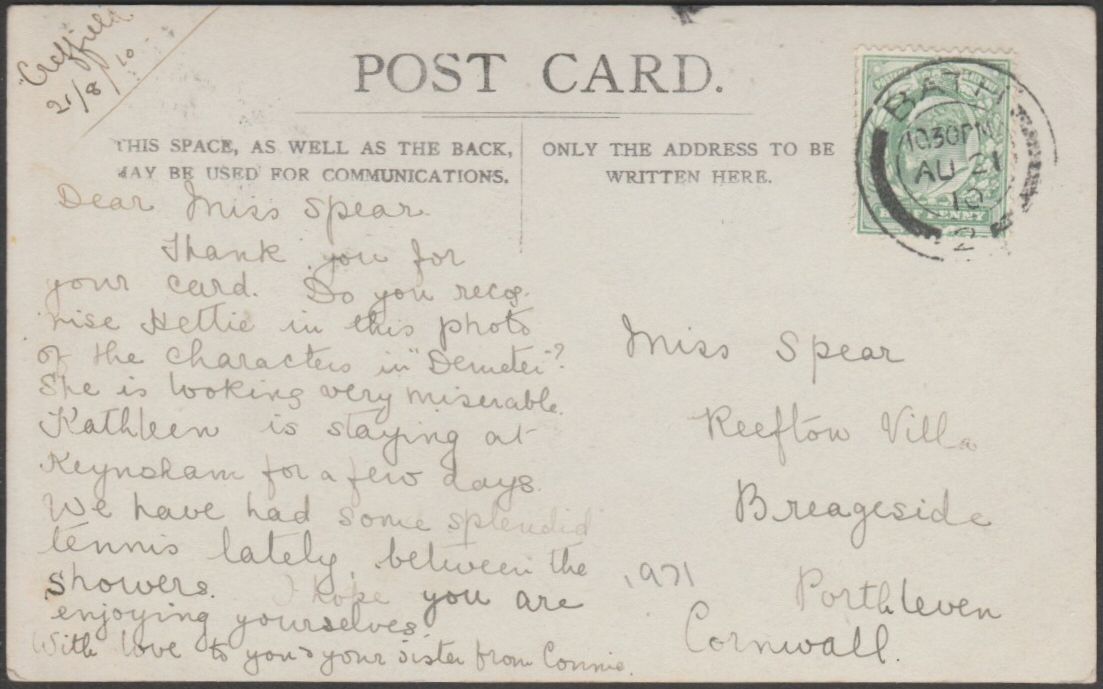 Creffield
21/8/10
POST CARD.
THIS SPACE, AS WELL AS THE BACK,
MAY BE USED FOR COMMUNICATIONS.
ONLY THE ADDRESS TO BE
WRITTEN HERE.
BATH
10.30PM
AU 21
10
2
HALFPENNY
Dear Miss Spear.
Thank you for
your card. Do you recog-
nise Hettie in this photo
of the characters in "Demeter"?
She is looking very miserable.
Kathleen is staying at
Keynsham for a few days.
We have had some splendid
tennis lately, between the
showers. I hope you are
enjoying yourselves.
With love to you & your sister from Connie.
Miss Spear
Reefton Villa
Breageside
Porthleven
Cornwall.
1971